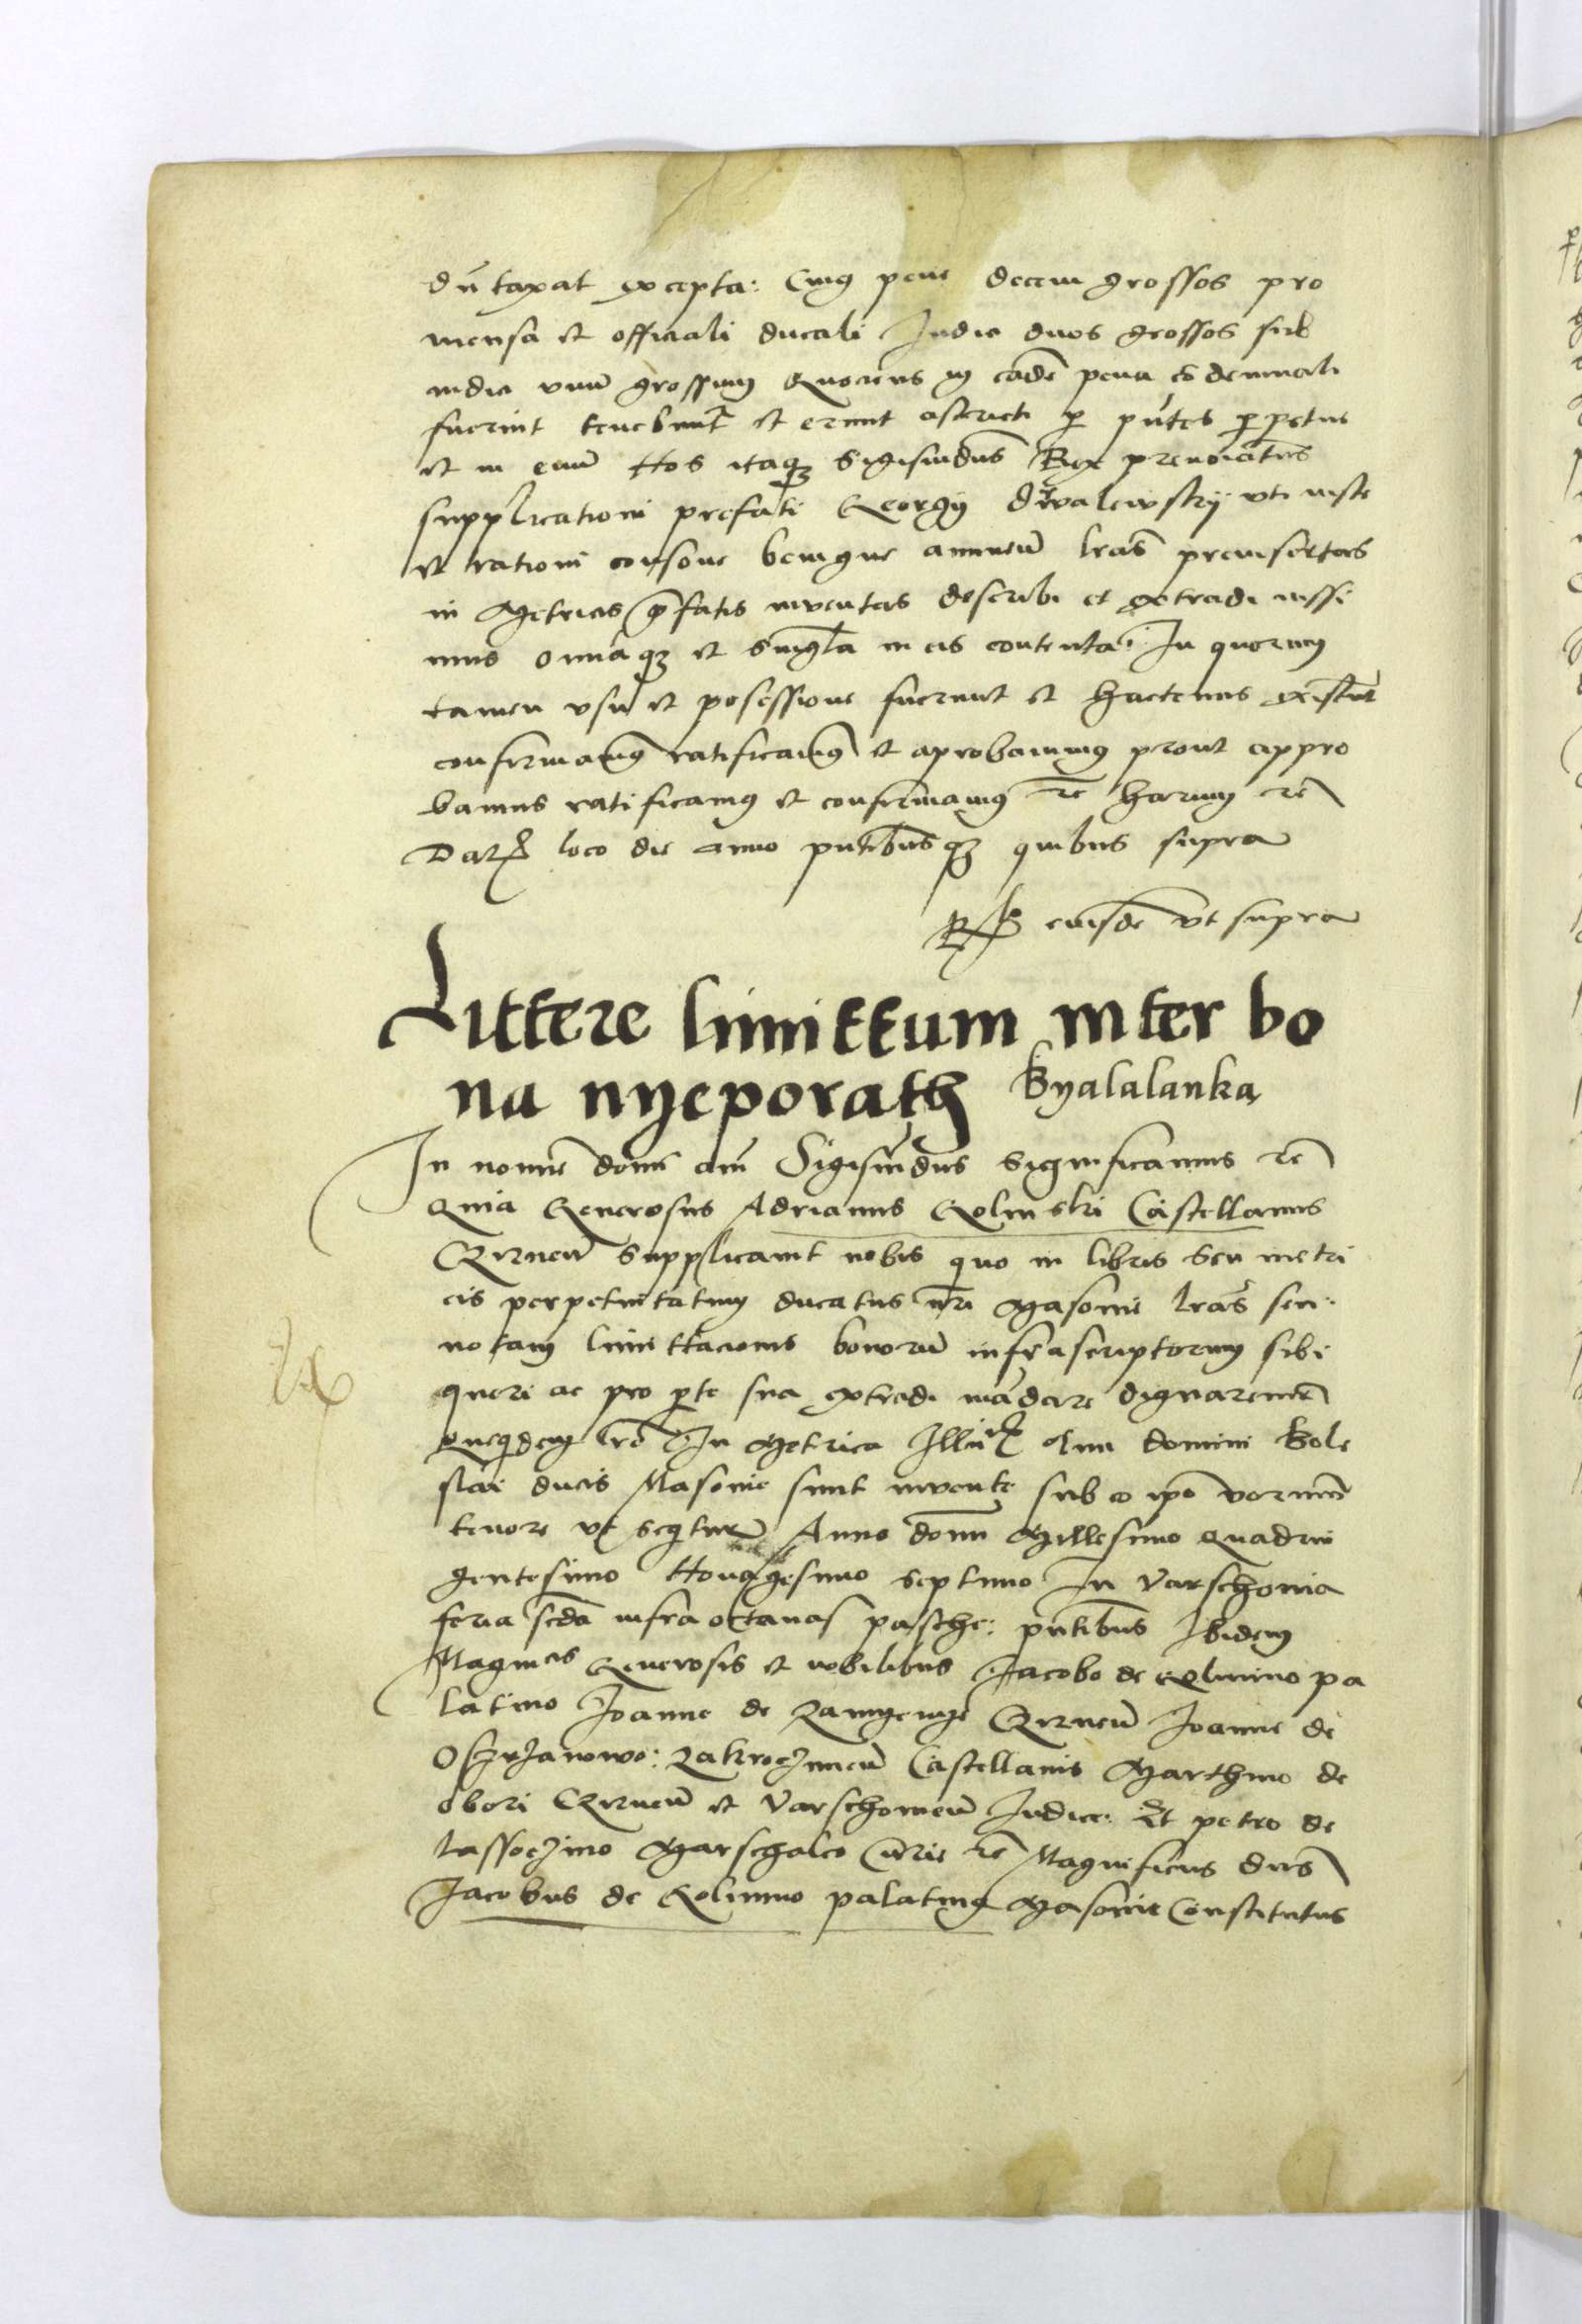 dūtaxat excepta: Cuiꝯ pene decem grossos pro
mensa et officiali ducali Judici duos grossos sub
iudici vnū grossum Quociens in eadē pena cōdemnati
fuerint tenebunt̄ et erunt astricti ꝑ pn̄tes ꝑpetue
et in euū Nos itaqꝫ Sigismūdus Rex prenoiātus
supplicationi prefati Georgij vti iuste
et rationi consone benigne annuen̄ lr̄as preinsertas
in Metricis p̄fatis inventas describi et extradi iussi
mus om̄iaqꝫ et singl̄a in eis contenta: In quorum
tamen vsu et posessione fuerunt et hactenus existūt
confirmamꝯ ratificamꝯ et aprobamus prout appro
bamus ratificamꝯ et confirmamꝯ rē harum rē
Datꝫ loco die anno pn̄tibusqꝫ quibus supra
eiusdē vt supra
Littere limittum inter bo
na nyeporath Byalalanka
In nomīe domī am̄ Sigismūdus Significamus rē
Quia Generosus Adrianus Golinski Castellanus
Czirnen̄ Supplicauit nobis quo in libris seu metri
cis perpetuitatum ducatus nr̄i Masouie lr̄as seu
notam limittacionis bonorū infrascriptorum sibi
queri ac pro ꝑte sua extradi mādare dignaremur
quequidem lr̄e In Metrica Illū olim domini Bole
slai ducis Masouie sunt invente sub eo ipō verm̄
tenore vt seqitur Anno domī Millesimo quadrin
gentesimo Nonagesimo septimo In Varschouia
feria scd̄a infra octauas pasche: pn̄tibus Ibidem
Magn̄cis Generosis et nobilibus Jacobo de Golinino pa
latino Joanne de Czirnen̄ Joanne de
Zakroczimen̄ Castellanis Marthino de
obori Czirnen̄ et Varschouien̄ Judice: Et petro de
lassoczino Marschalco Curie rē Magnificus dn̄s
Jacobus de Golinino palatinꝯ Masouie Constitutus